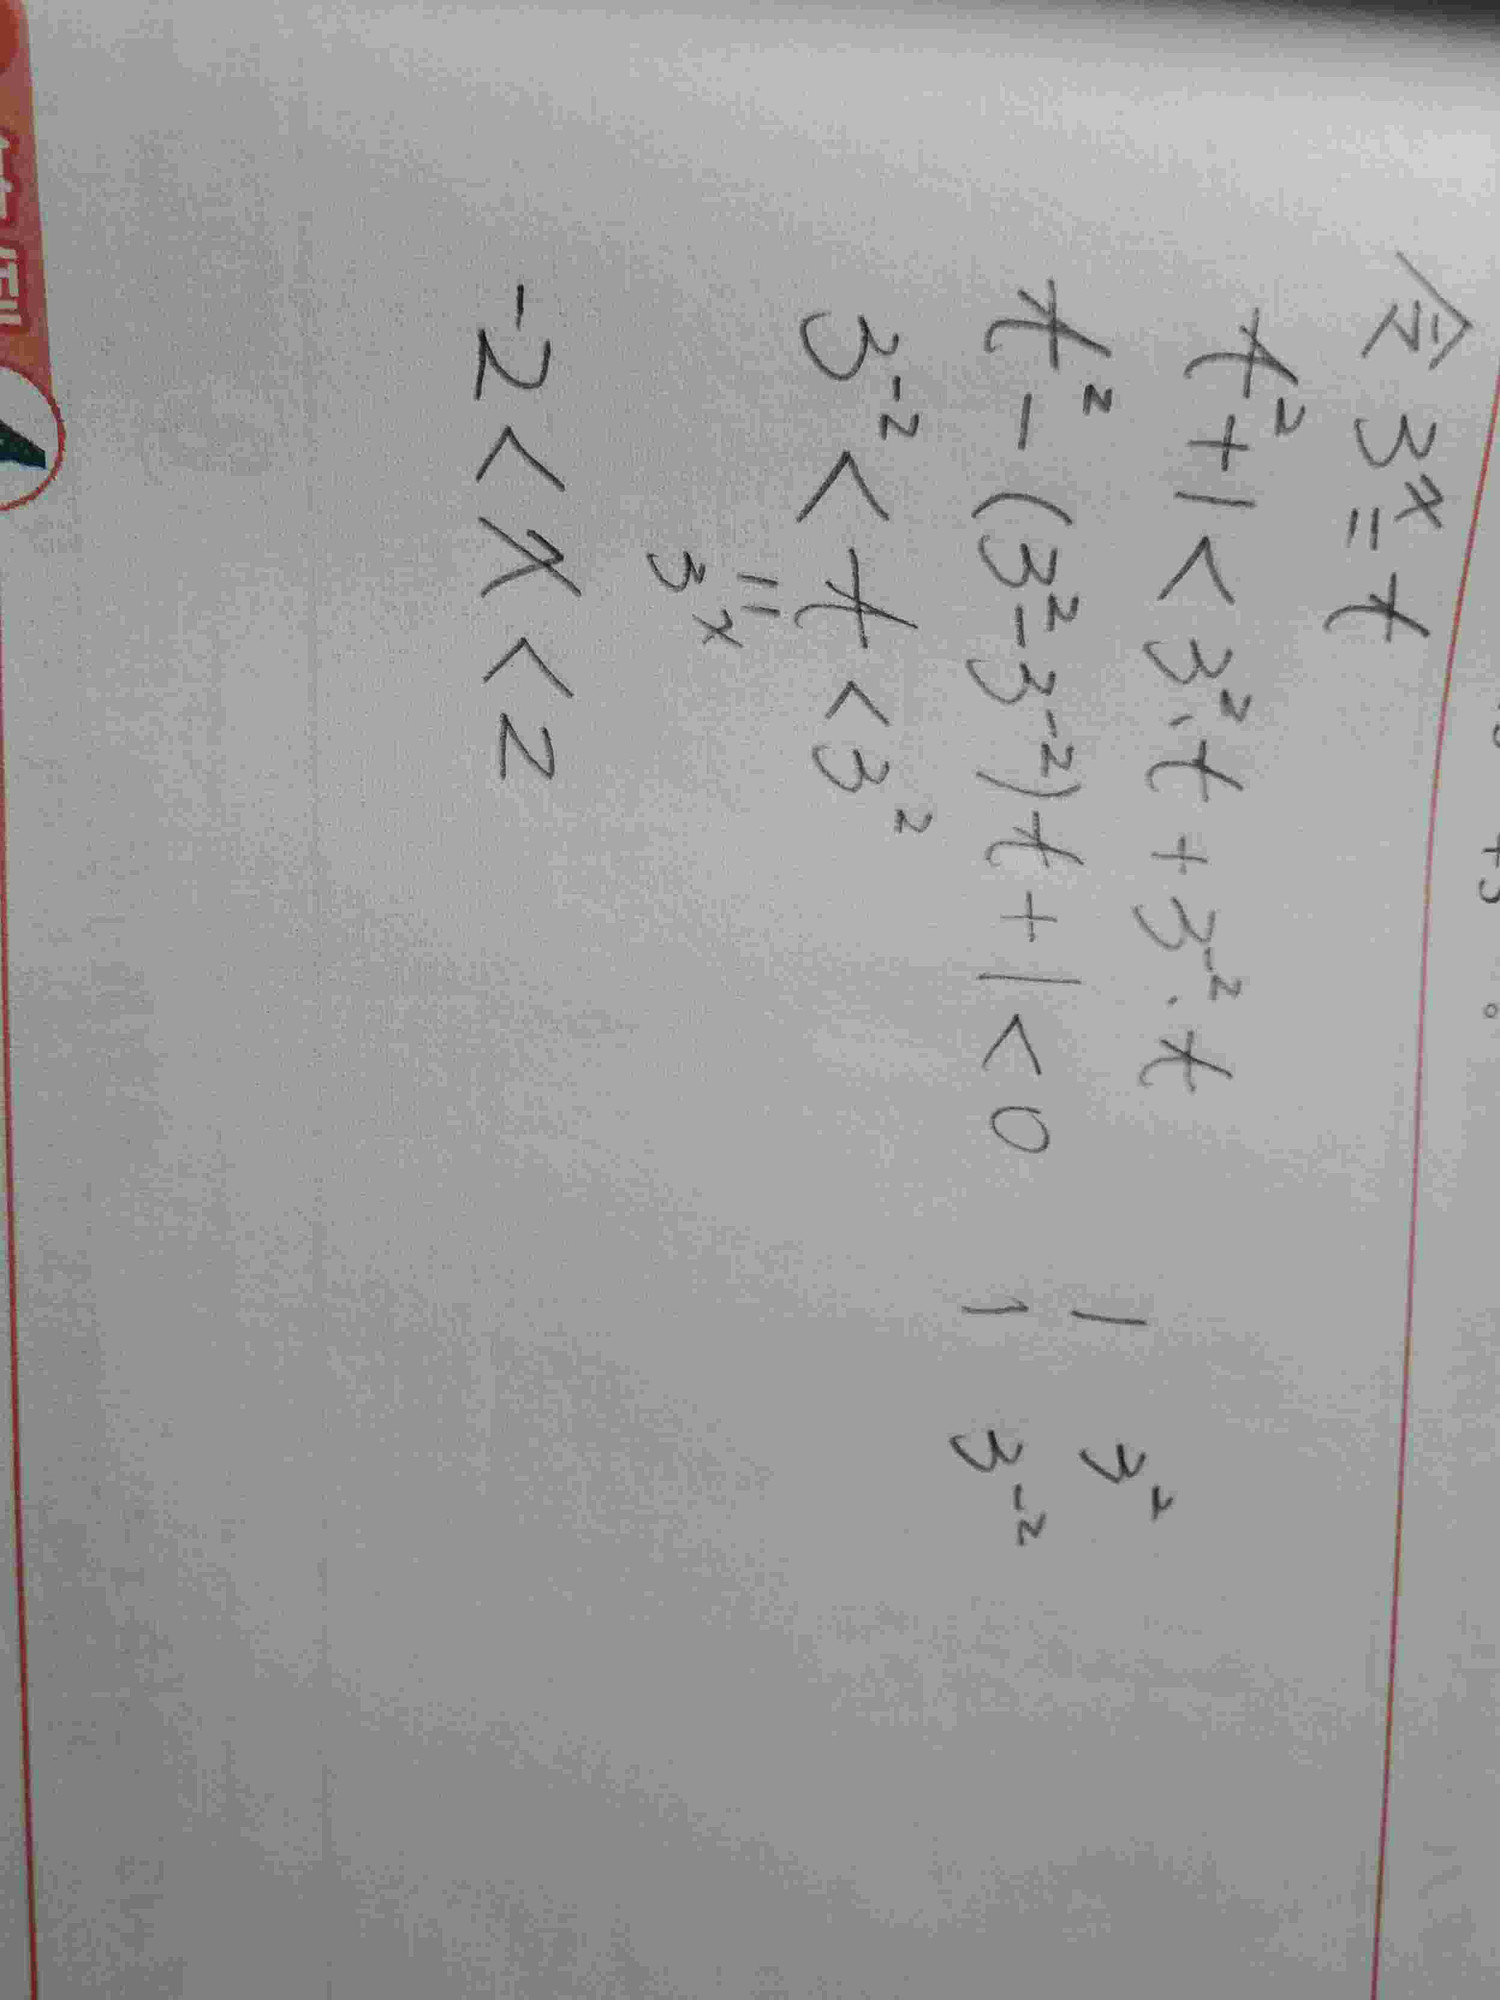 令 3^x = t
t^2 + 1 < 3^2 · t + 3^-2 · t
t^2 - (3^2 - 3^-2) t + 1 < 0
1 3^2
1 3^-2
3^-2 < t < 3^2
=
3^x
-2 < x < 2